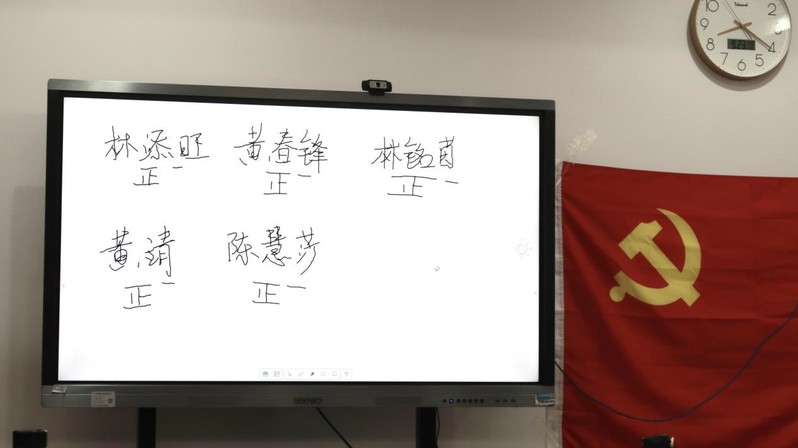 林添旺 黄春锋 林铭茵
正一 正一 正一
黄靖 陈慧莎
正一 正一
SEEWO
10
2
3
4
5
6
7
8
9